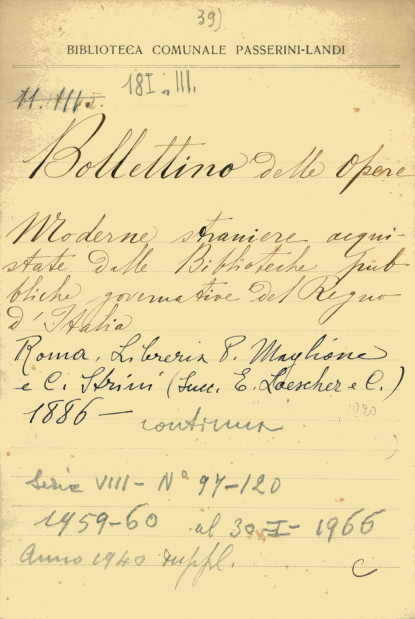 39)
BIBLIOTECA COMUNALE PASSERINI-LANDI
18I, III.
Bollettino delle Opere
Moderne straniere acqui-
state dalle Biblioteche pub-
bliche governative del Regno
d'Italia
Roma, Libreria P. Maglione
e C. Strini (Succ. E. Loescher e C.)
1886 — continua
1920
Serie VIII - Nº 97-120
1959-60 al 30-I-1966
Anno 1940 suppl.
C